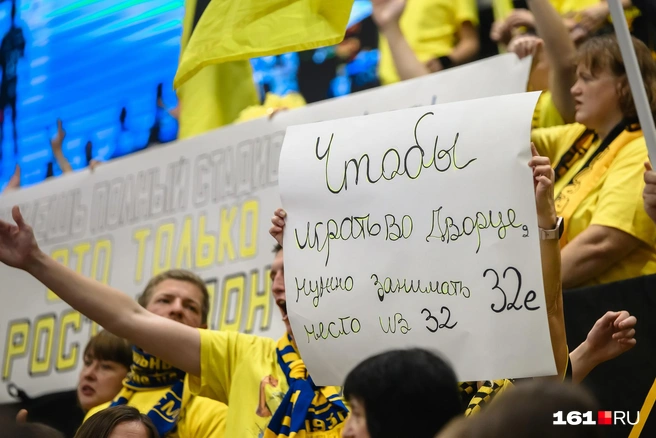 Чтобы
играть во Дворце,
нужно занимать 32е
место из 32
ПОЛНЫЙ СТАДИ
ЭТО ТОЛЬКО
РОС
161.RU